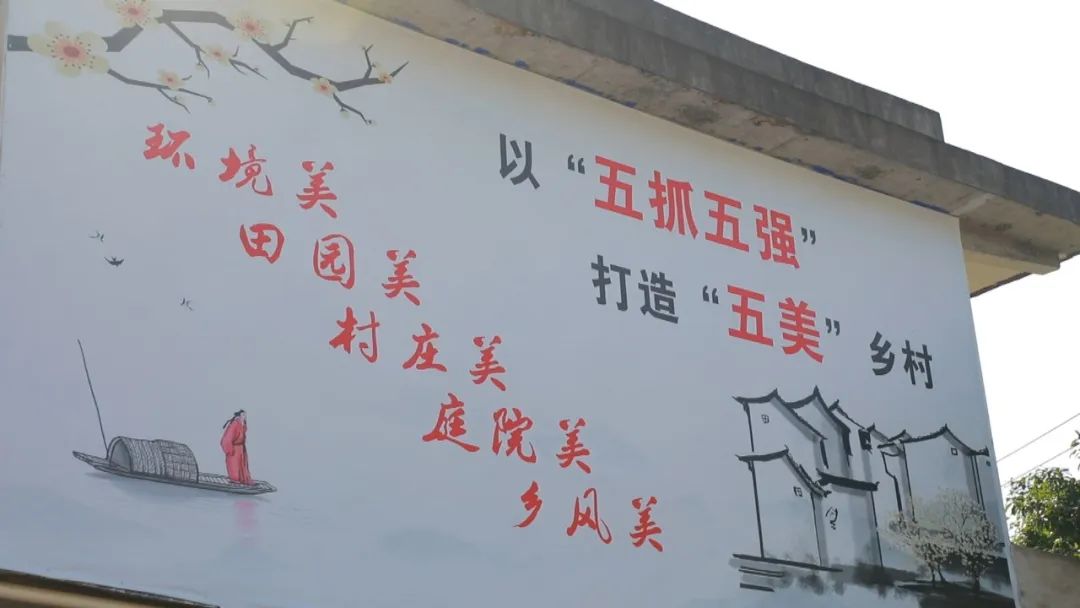 以“五抓五强”
打造“五美”乡村
环境美
田园美
村庄美
庭院美
乡风美